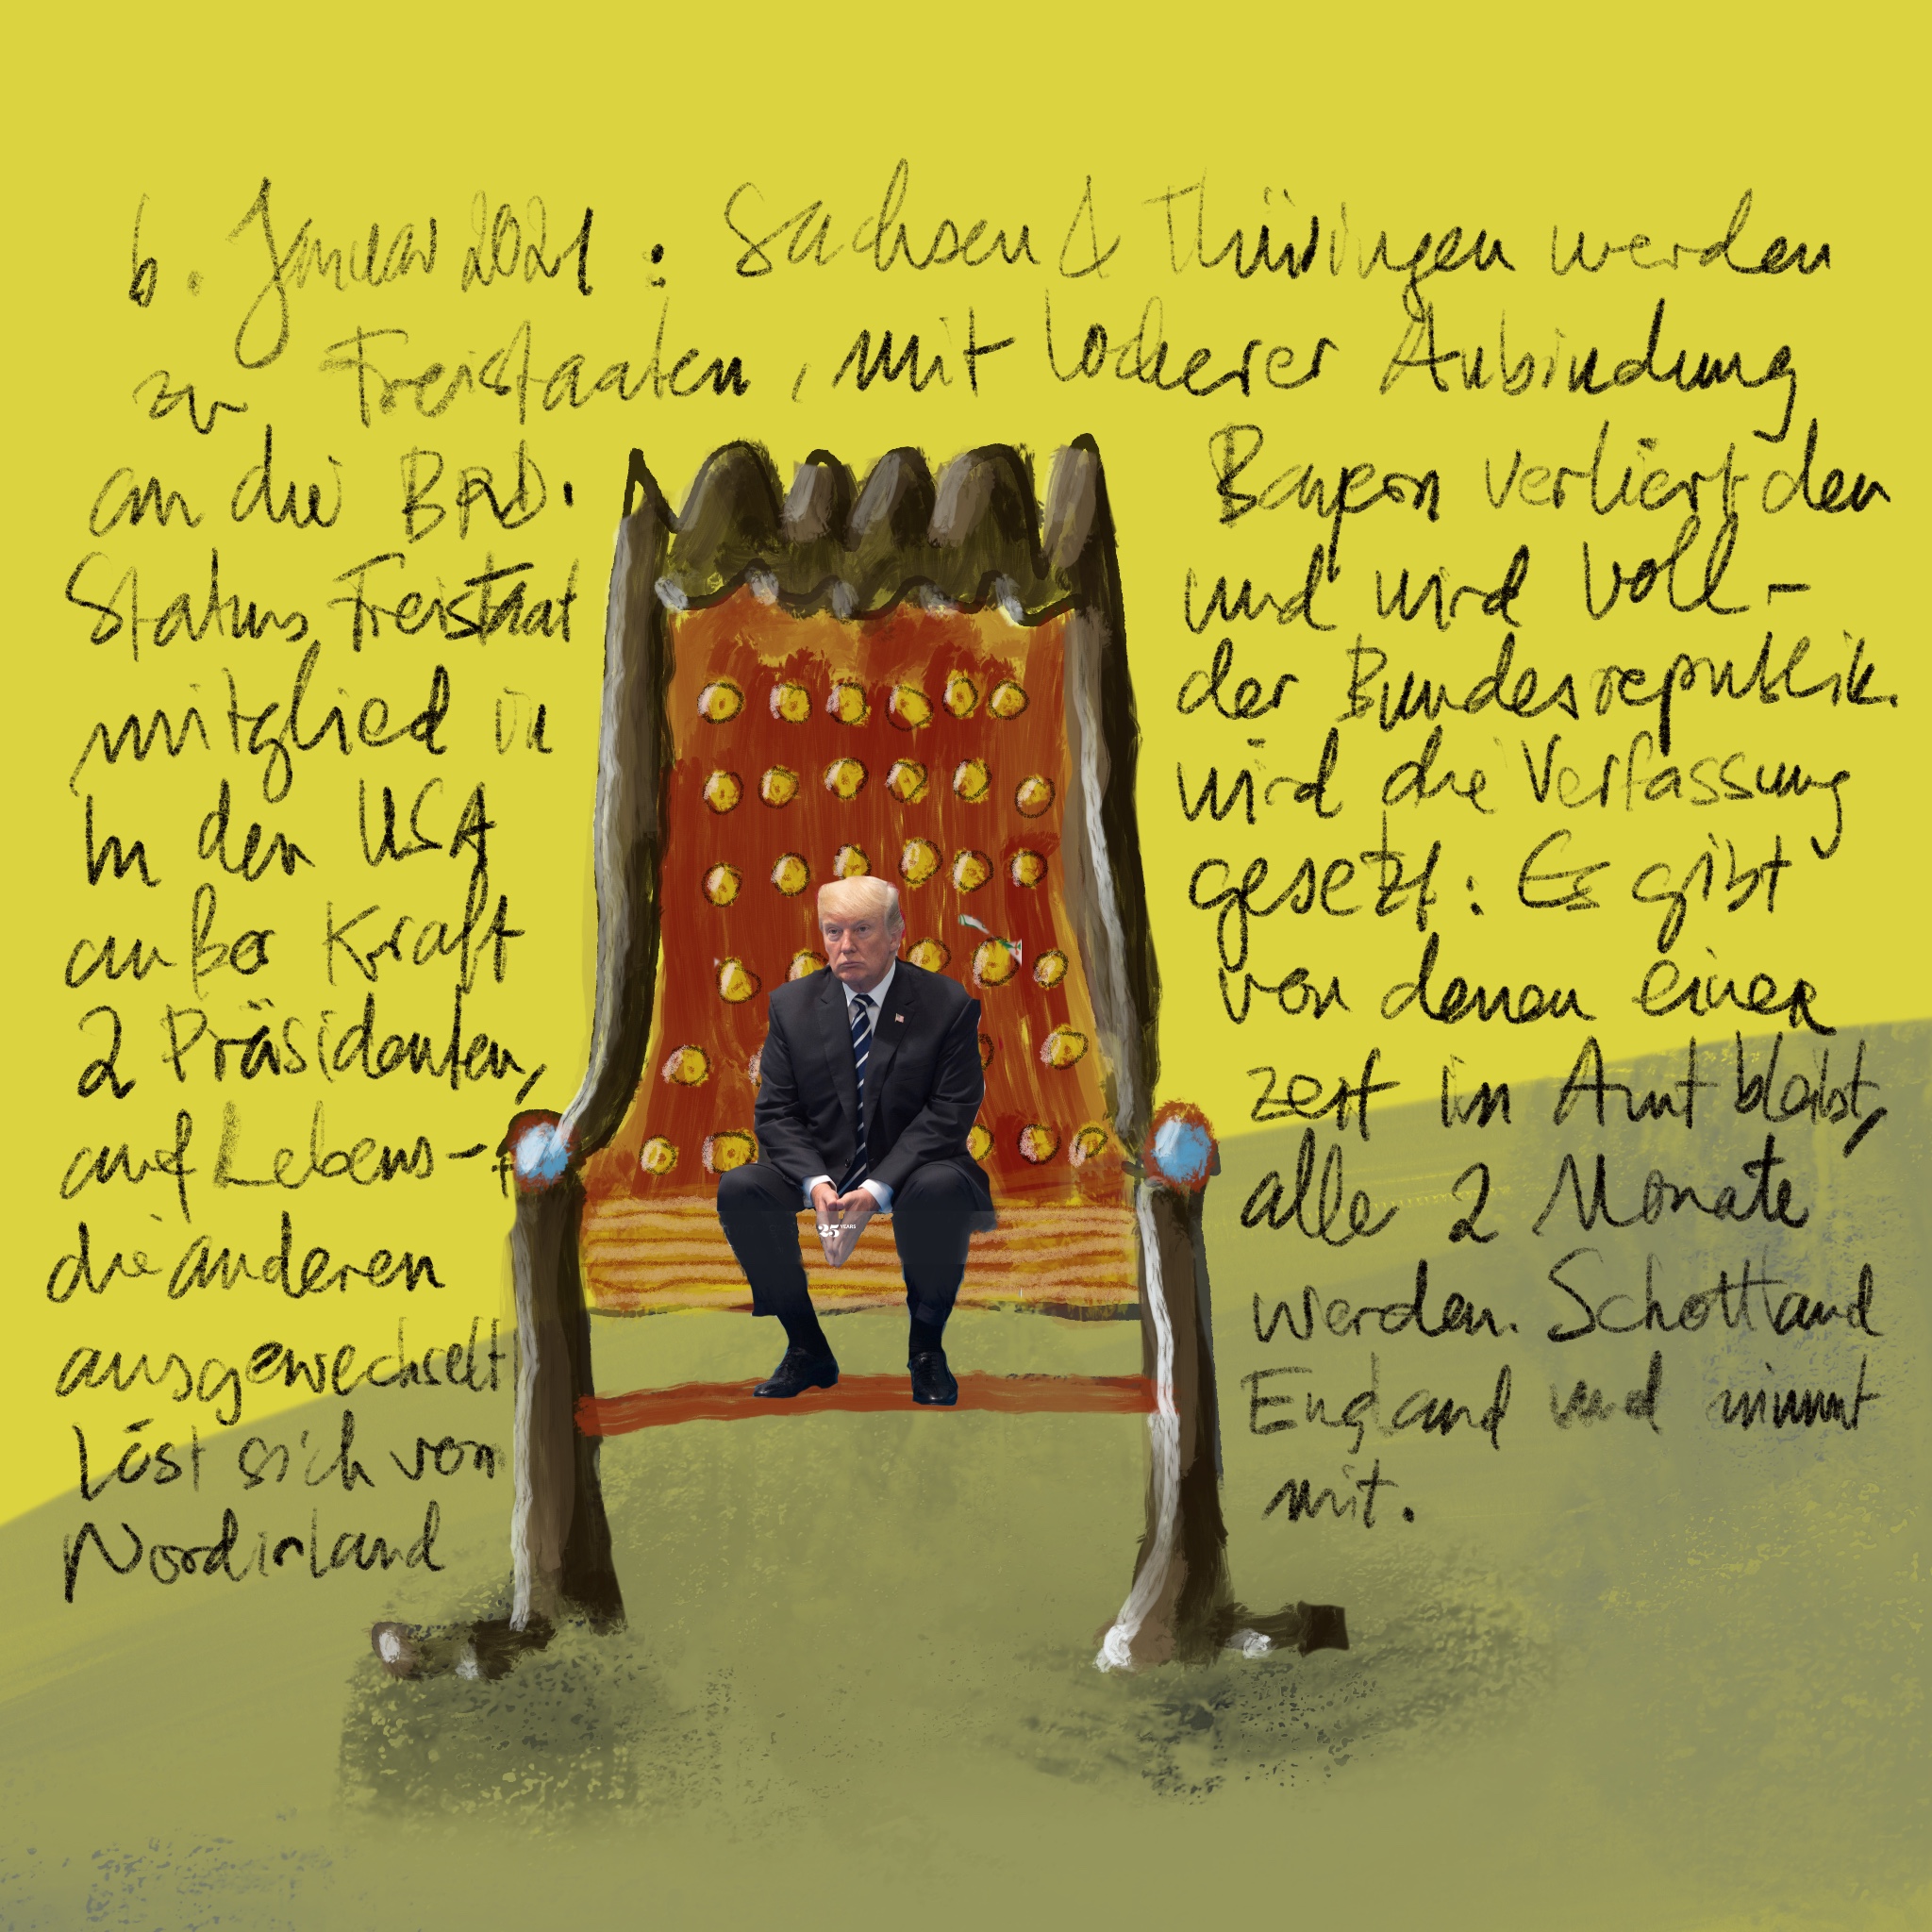 6. Januar 2021 : Sachsen & Thüringen werden
zu Freistaaten, mit lockerer Anbindung
an die BRD. Bayern verliert den
Status Freistaat und wird voll-
mitglied in der Bundesrepublik.
In den USA wird die Verfassung
außer Kraft gesetzt: Es gibt
2 Präsidenten, von denen einer
auf Lebens- zeit im Amt bleibt,
die anderen alle 2 Monate
ausgewechselt werden. Schottland
Löst sich von England und nimmt
Nordirland mit.
25 YEARS